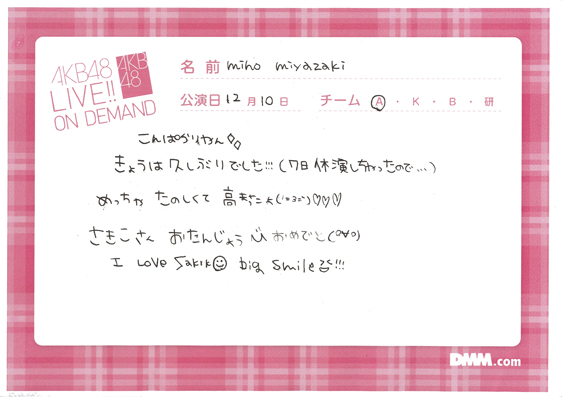 AKB48
LIVE!!
ON DEMAND
AKB
48
名前 miho miyazaki
公演日 12月10日 チーム A・K・B・研
こんばかりやん
きょうは久しぶりでした!!!(7日休演しちゃったので...)
めっちゃ たのしくて 高まった
さきこさく おたんじょう日 おめでと(o∀o)
I Love Sakiko big smile!!!
DMM.com